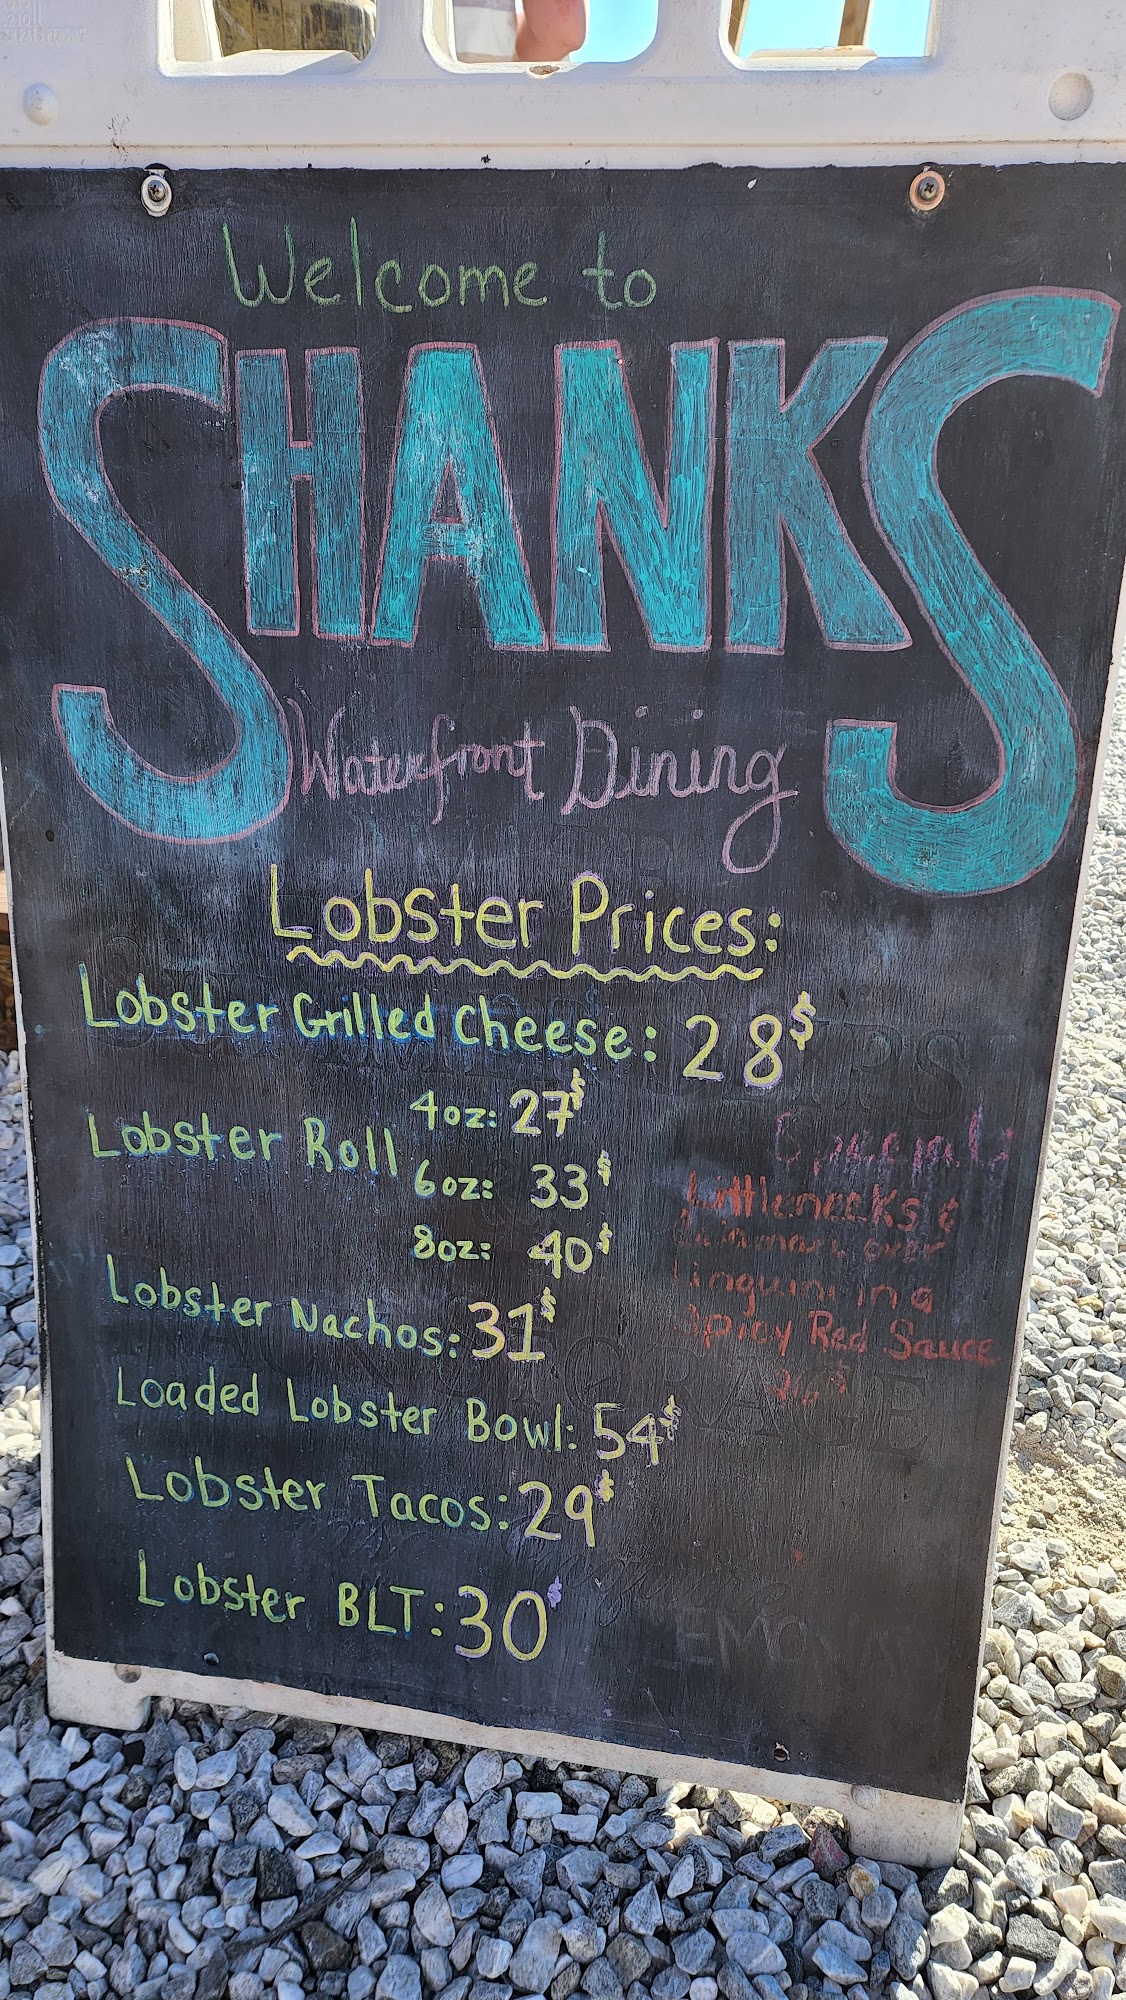 Welcome to
SHANKS
Waterfront Dining
Lobster Prices:
Lobster Grilled Cheese: 28$
Lobster Roll
4oz: 27$
6oz: 33$
8oz: 40$
Lobster Nachos: 31$
Loaded Lobster Bowl: 54$
Lobster Tacos: 29$
Lobster BLT: 30$
Littlenecks &
over
linguini in a
Spicy Red Sauce